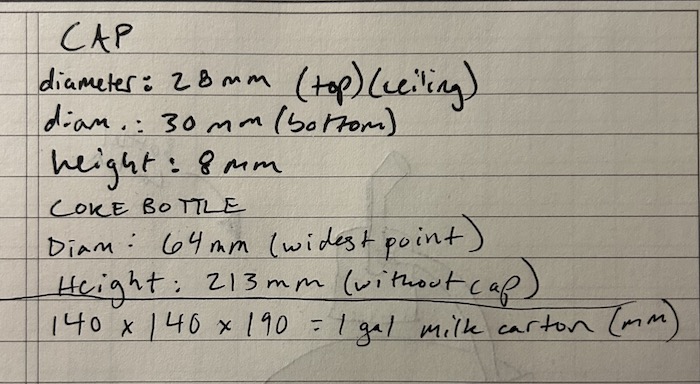 CAP
diameter: 28 mm (top) (ceiling)
diam.: 30 mm (bottom)
height: 8 mm
COKE BOTTLE
Diam: 64 mm (widest point)
Height: 213 mm (without cap)
140 x 140 x 190 = 1 gal milk carton (mm)